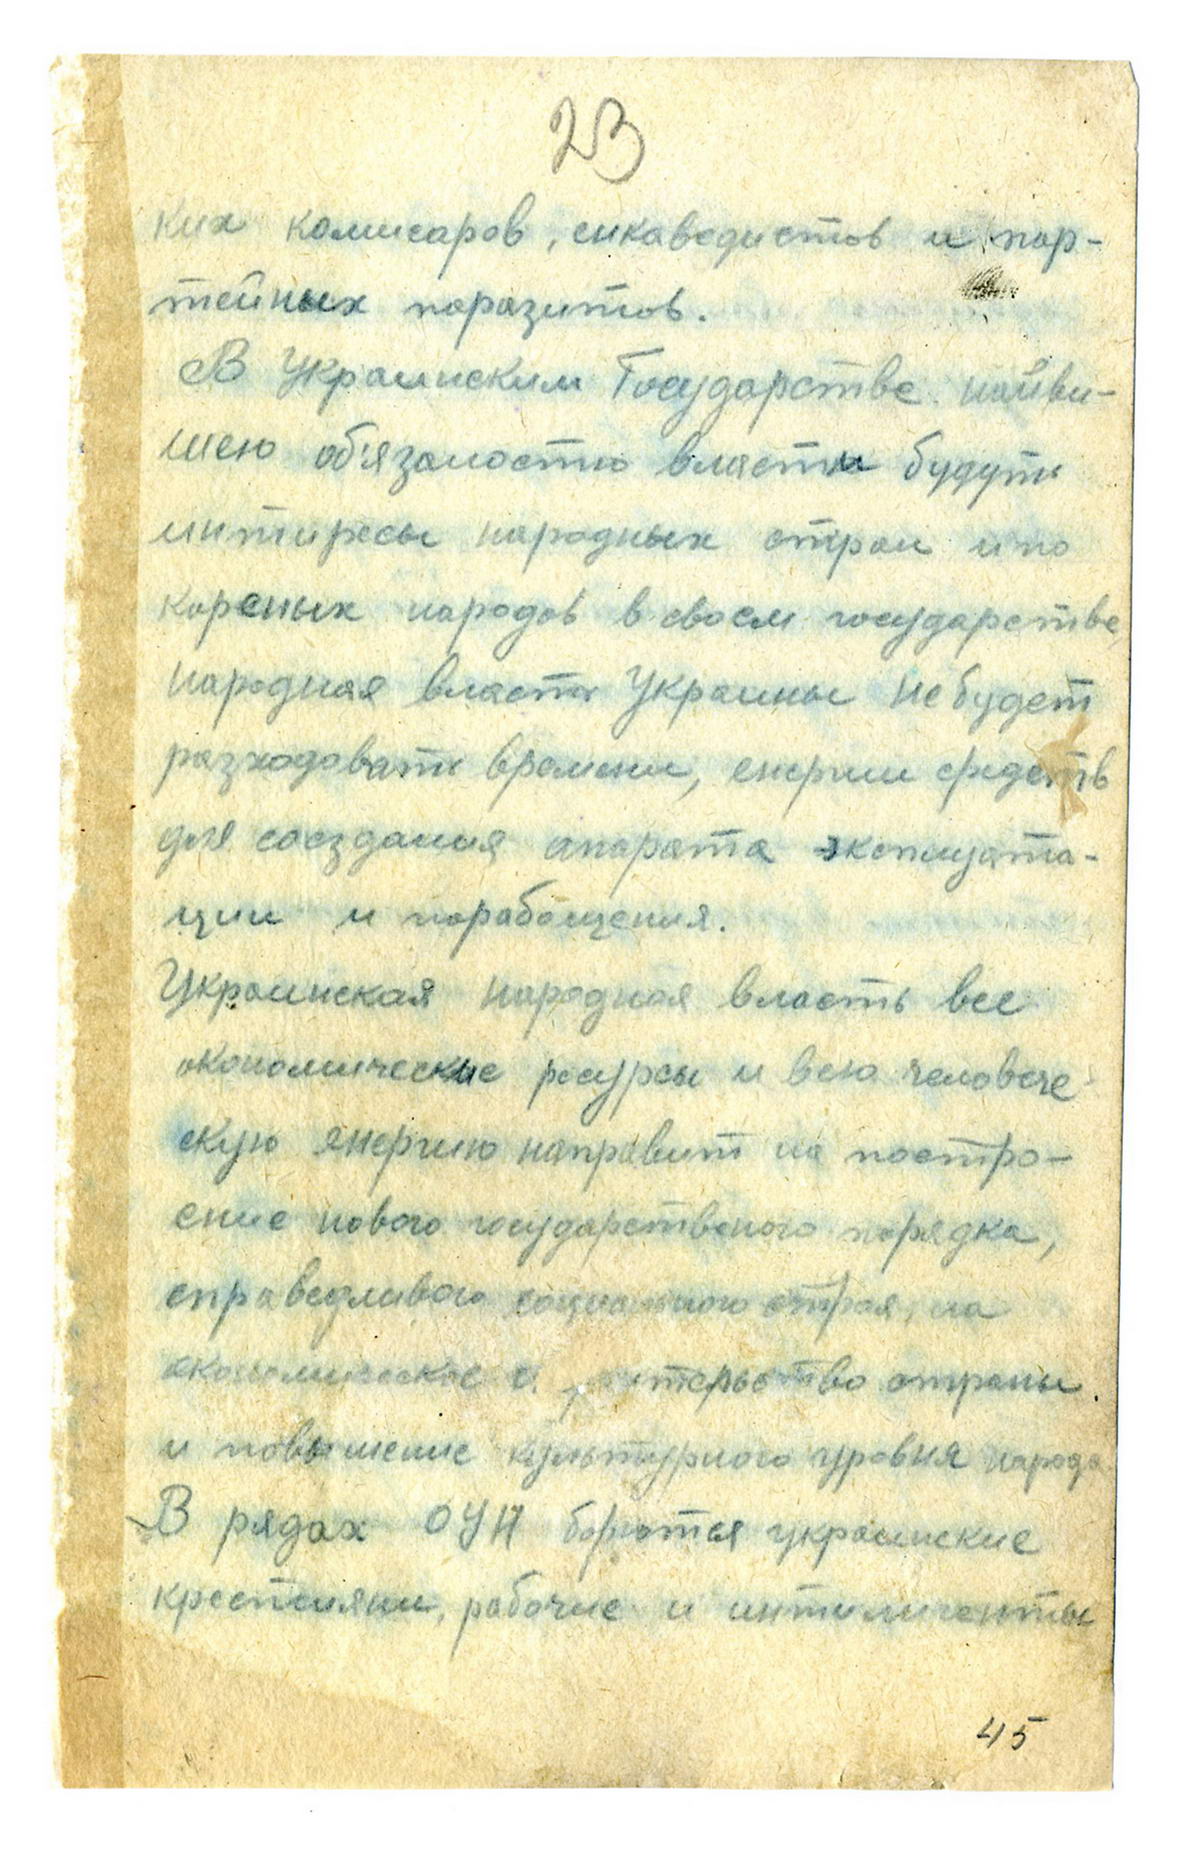 23
ких комисаров, енкаведистов и пар-
тейных паразитов.
В Украинским Государстве найви-
шею об'язаностю власти будуть
интиресы народных стран и по
кореных народов в своем государстве
народная власть Украины не будет
разходовать времени, енергии средств
для созздания апарата эксплуата-
ции и порабощения.
Украинская народная власть все
економические ресурсы и всю человече-
скую енергию направит на постро-
ение нового государственого порядка,
справедливого социального строя, на
економическое страны
и повышение культурного уровня народа
В рядах ОУН борются украинские
крестияни, рабочие и интилигенты
45